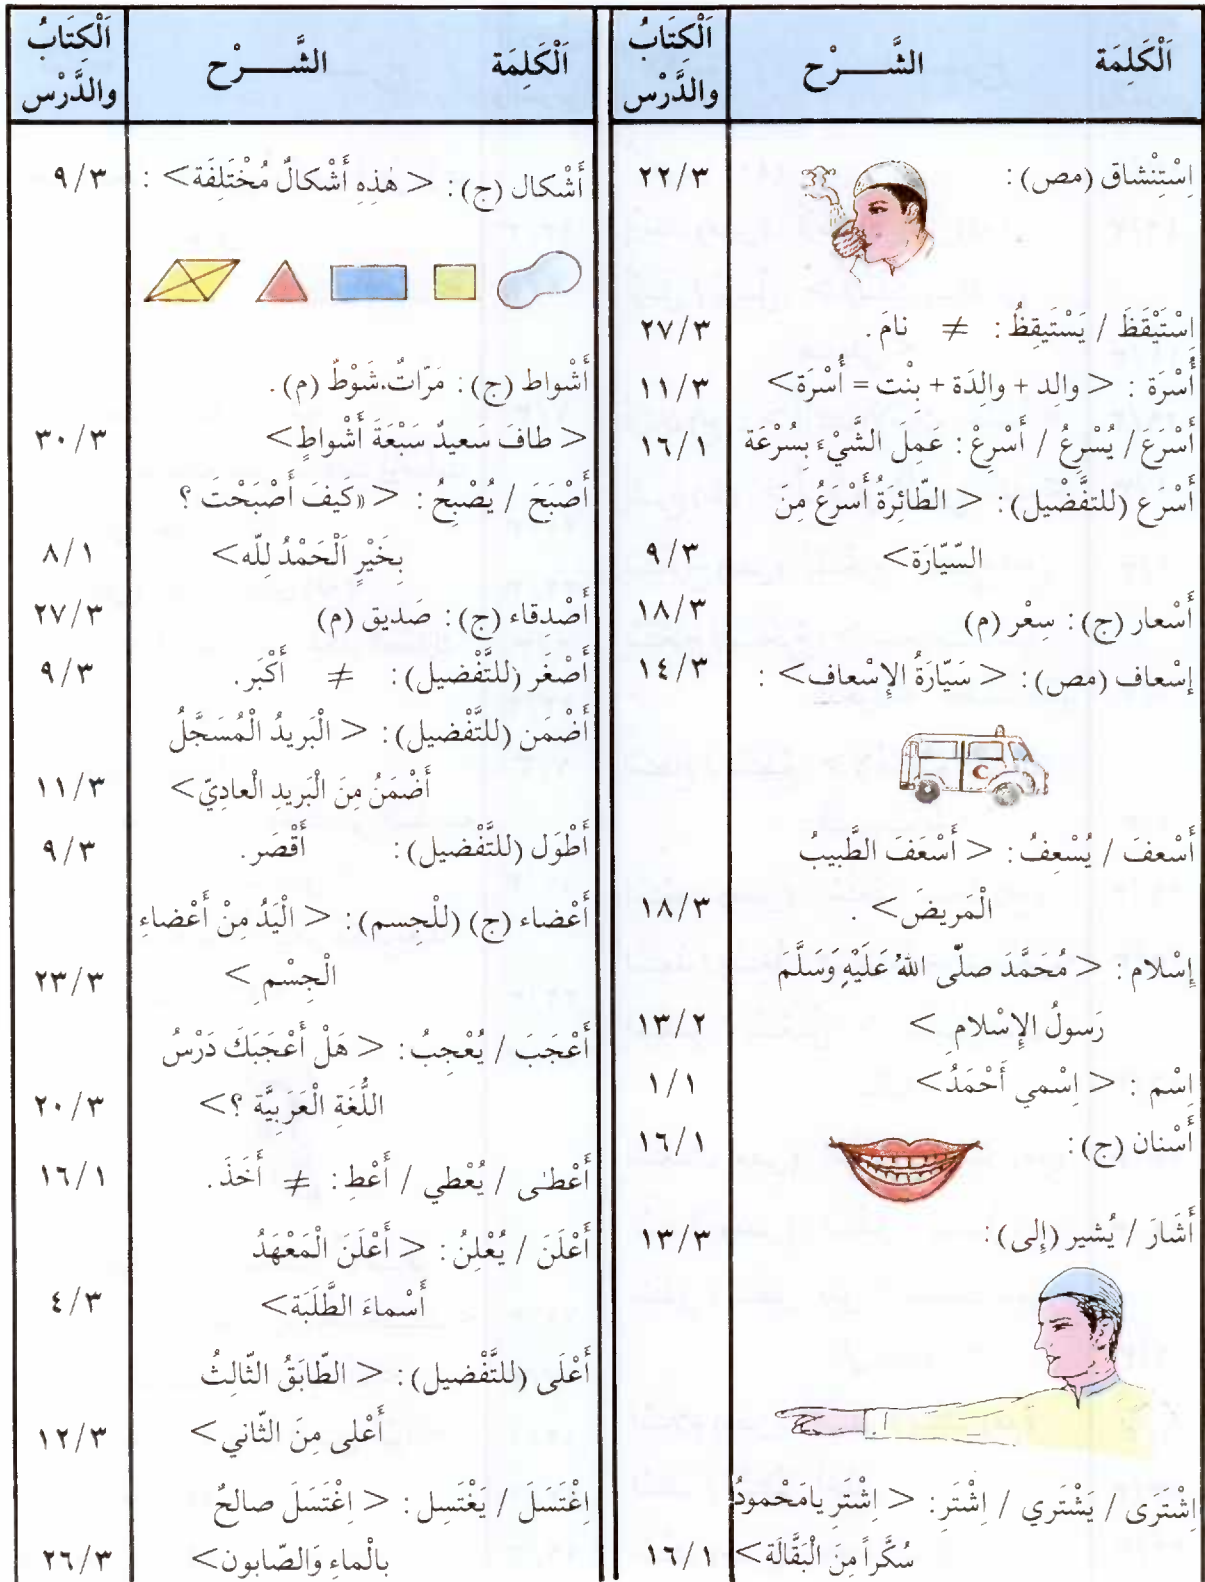 اَلْكَلِمَة الشَّـــرْح اَلْكِتَابُ والدَّرْس
اِسْتِنْشاق (مص) : ٢٢/٣
اِسْتَيْقَظَ / يَسْتَيقِظُ : ≠ نامَ . ٢٧/٣
أُسْرَة : < والد + والِدَة + بِنْت = أُسْرَة> ١١/٣
أَسْرَع / يُسْرِعُ / أَسْرِعْ : عَمِلَ الشَّيْءَ بِسُرْعَة ١٦/١
أَسْرَع (للتفَّضْيل) : < الطّائِرَةُ أَسْرَعُ مِنَ
السّيّارَة> ٩/٣
أَسْعار (ج) : سِعْر (م) ١٨/٣
إسْعاف (مص) : < سَيّارَةُ الإِسْعاف> : ١٤/٣
أَسْعفَ / يُسْعِفُ : < أَسْعَفَ الطَّبيبُ
الْمَريضَ> . ١٨/٣
إِسْلام : < مُحَمَّدَ صلّى اللهُ عَلَيْهِ وَسَلَّمَ
رَسولُ الإِسْلامِ > ١٣/٢
اِسْم : < اِسْمي أَحْمَدُ> ١/١
أَسْنان (ج) : ١٦/١
أَشَارَ / يُشير (إلى) : ١٣/٣
اِشْتَرَى / يَشْتَري / اِشْتَرِ : < اِشْتَرِ يامَحْمودُ
سُكَّراً مِنَ الْبَقَّالَة> ١٦/١
اَلْكَلِمَة الشَّـــرْح اَلْكِتَابُ والدَّرْس
أَشْكال (ج) : < هٰذِهِ أَشْكالٌ مُخْتَلِفَة> : ٩/٣
أَشْواط (ج) : مَرّاتٌ.شَوْطٌ (م) .
< طافَ سَعيدٌ سَبْعَةَ أَشْواطٍ> ٣٠/٣
أَصْبَحَ / يُصْبِحُ : < «كَيفَ أَصْبَحْتَ ؟
بِخَيْرٍ اَلْحَمْدُ لِلّه> ٨/١
أَصْدِقاء (ج) : صَديق (م) ٢٧/٣
أَصْغَر (للتَّفْضيل) : ≠ أَكْبَر . ٩/٣
أَضْمَن (للتَّفْضيل) : < الْبَريدُ الْمُسَجَّلُ
أَضْمَنُ مِنَ الْبَريدِ الْعادِيّ> ١١/٣
أَطْوَل (للتَّفْضيل) : أَقْصَر . ٩/٣
أَعْضاء (ج) (للْجِسم) : < الْيَدُ مِنْ أَعْضاءِ
الْجِسْمِ > ٢٣/٣
أَعْجَبَ / يُعْجِبُ : < هَلْ أَعْجَبَكَ دَرْسُ
اللُّغَةِ الْعَرَبِيَّة ؟> ٢٠/٣
أَعْطـٰى / يُعْطي / أَعْطِ : ≠ أَخَذَ . ١٦/١
أَعْلَنَ / يُعْلِنُ : < أَعْلَنَ الْمَعْهَدُ
أَسْماءَ الطَّلَبَة> ٤/٣
أَعْلَى (للتَّفْضيل) : < الطّابَقُ الثّالِثُ
أَعْلى مِنَ الثّاني> ١٢/٣
اِغْتَسَلَ / يَغْتَسِل : < اِغْتَسَلَ صالحٌ
بالْماءِ وَالصّابون> ٢٦/٣